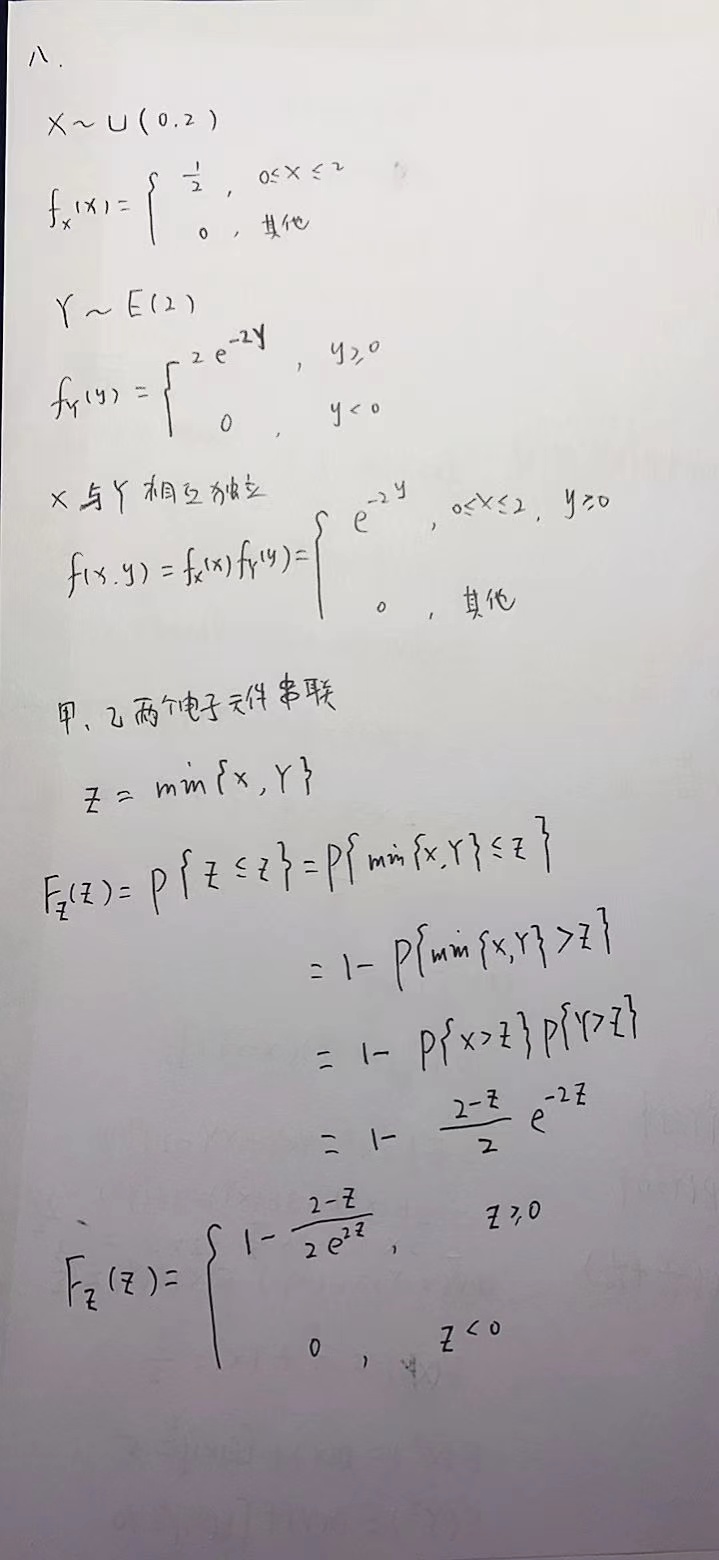 八.
X ~ U(0.2)
f_X(x) = { 1/2 , 0≤X≤2
0 , 其他
Y ~ E(2)
f_Y(y) = { 2e^{-2Y} , y≥0
0 , y<0
X 与 Y 相互独立
f(x.y) = f_X(x) f_Y(y) = { e^{-2y} , 0≤X≤2, y≥0
0 , 其他
甲、乙两个电子元件串联
Z = min{X, Y}
F_Z(Z) = P{Z≤Z} = P{min{X,Y}≤Z}
= 1- P{min{X,Y}>Z}
= 1- P{X>Z} P{Y>Z}
= 1- (2-Z)/2 e^{-2Z}
F_Z(Z) = { 1- (2-Z)/(2e^{2Z}) , Z≥0
0 , Z<0